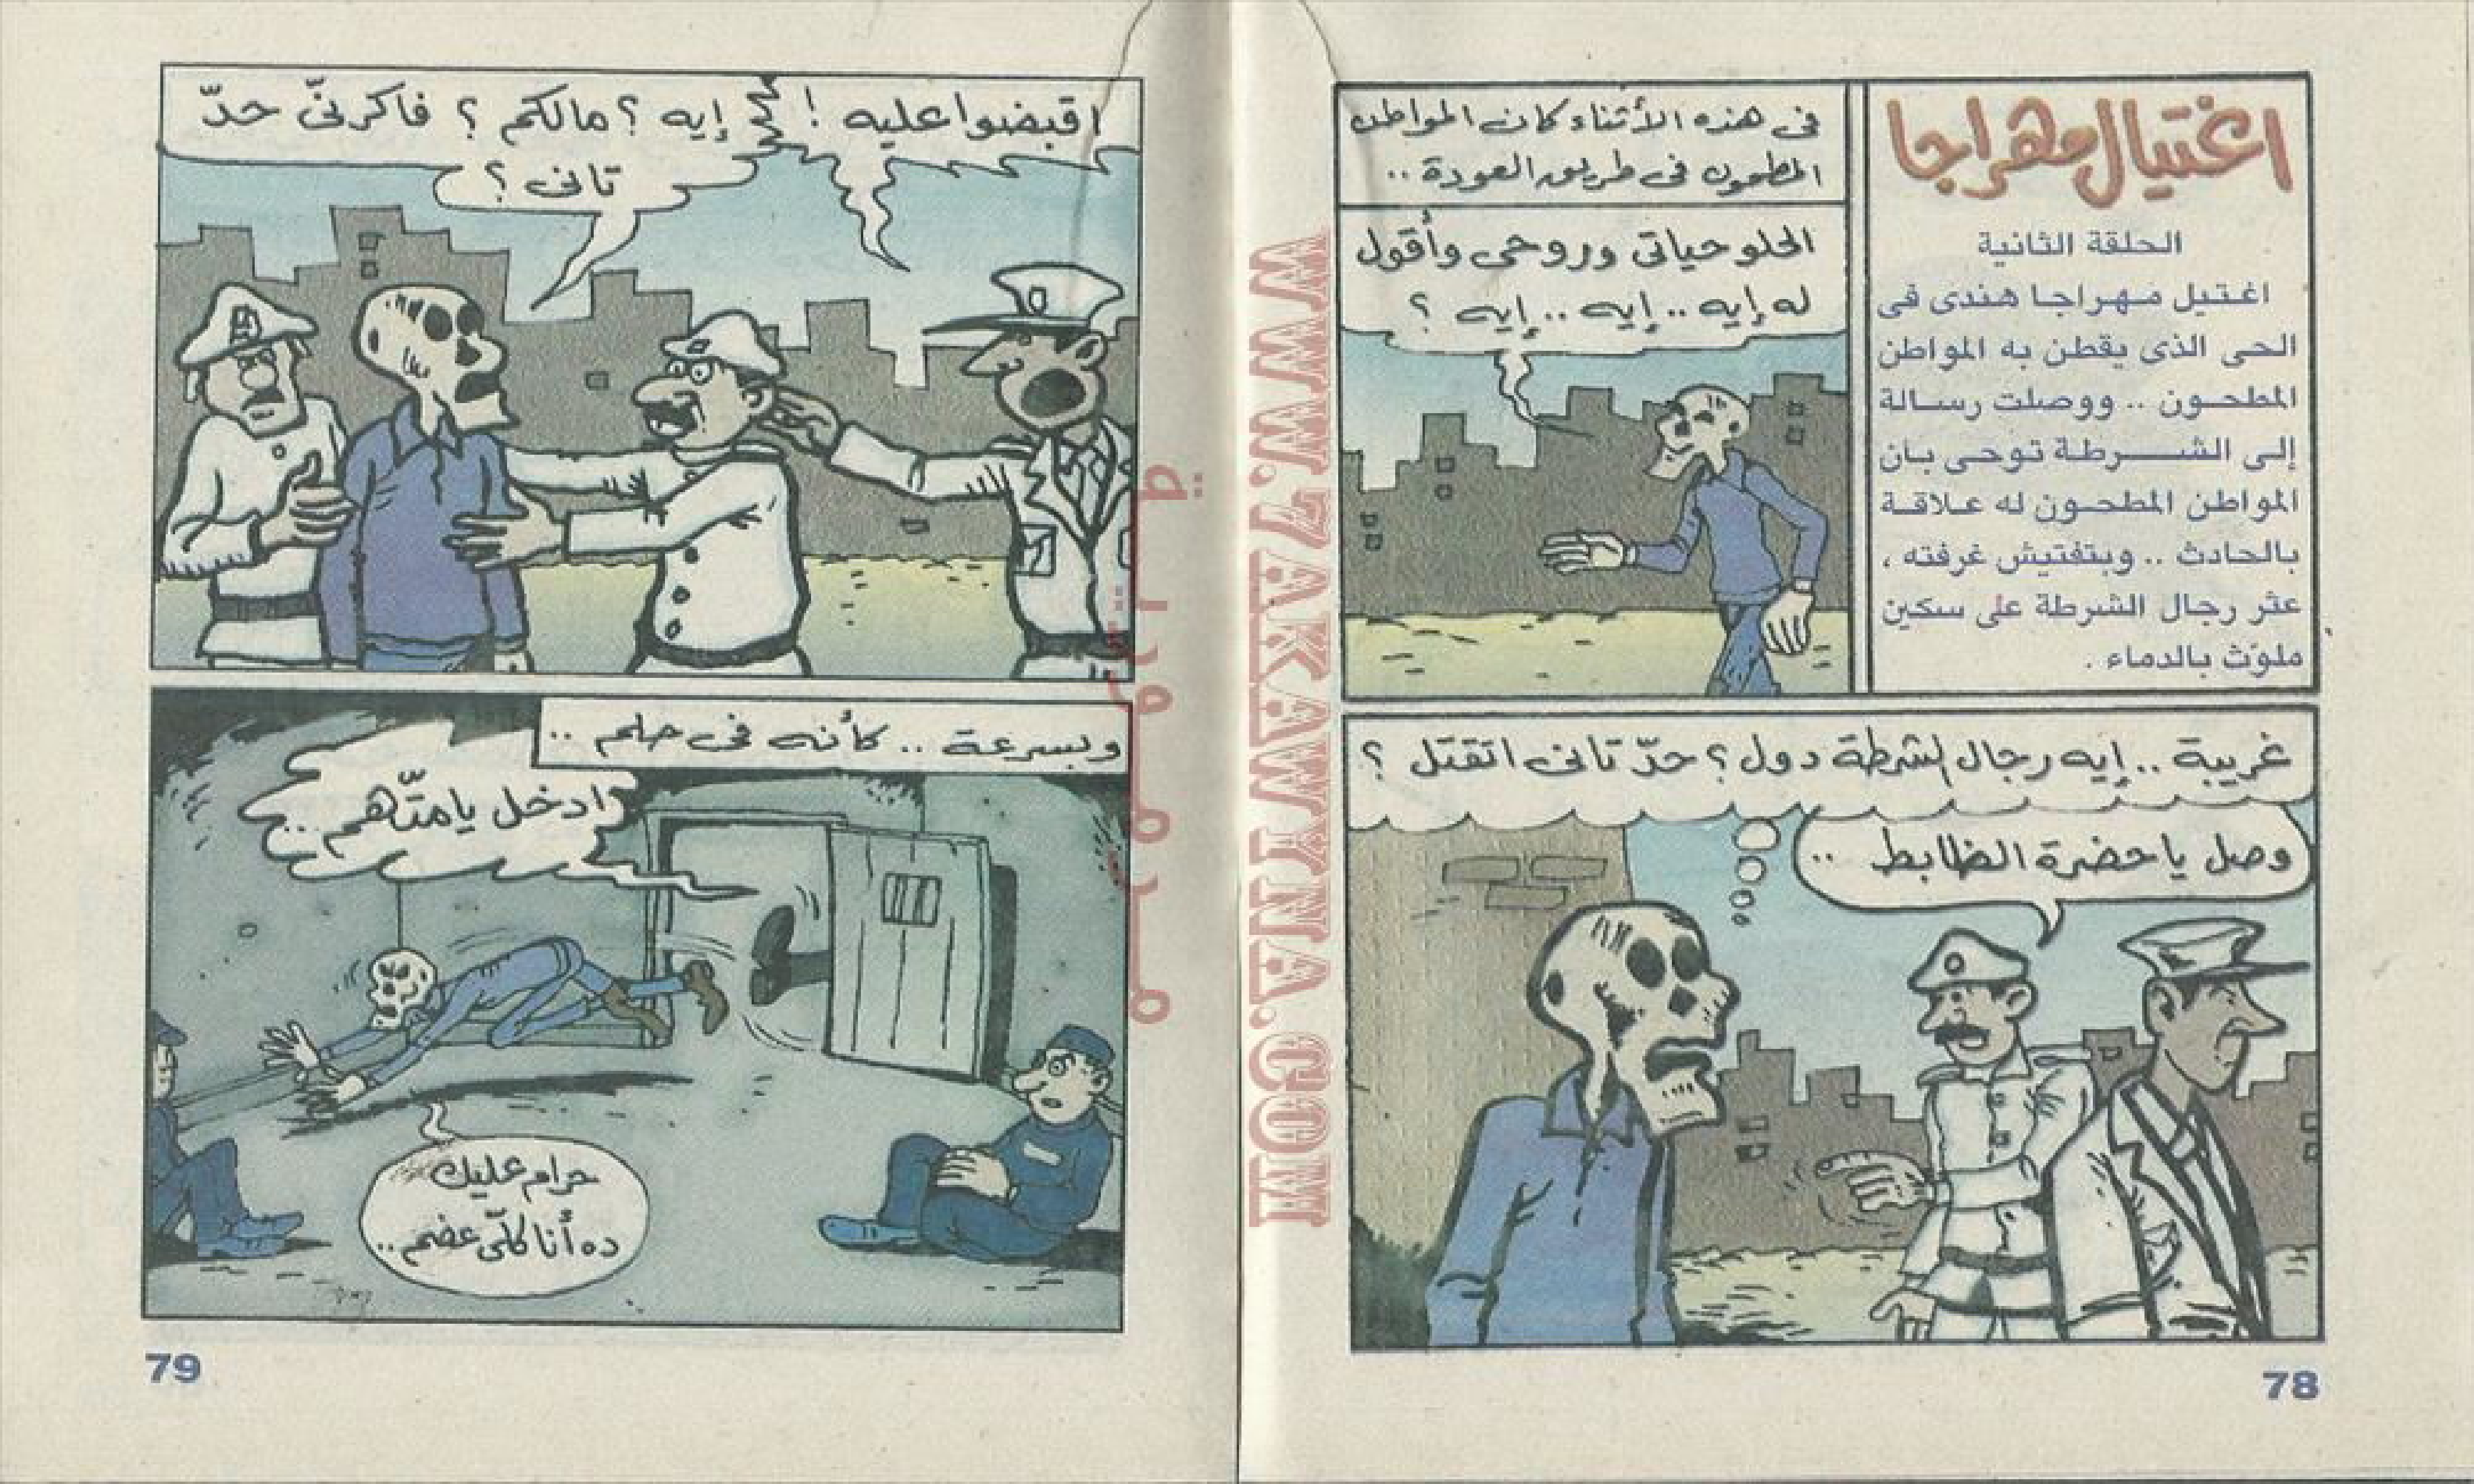 اغتيال مهراجا
الحلقة الثانية
اغتيل مهراجا هندى فى
الحى الذى يقطن به المواطن
المطحون .. ووصلت رسالة
إلى الشرطة توحى بأن
المواطن المطحون له علاقة
بالحادث .. وبتفتيش غرفته ،
عثر رجال الشرطة على سكين
ملوّث بالدماء .
فى هذه الأثناء كان المواطن
المطحون فى طريق العودة ..
الحلو حياتى وروحى وأقول
له إيه .. إيه .. إيه ؟
غريبة .. إيه رجال الشرطة دول ؟ حدّ تانى اتقتل ؟
وصل يا حضرة الظابط ..
78
اقبضوا عليه !
إيه ؟ مالكم ؟ فاكرنّى حدّ
تانى ؟
وبسرعة .. كأنه فى حلم ..
ادخل يا متّهم ..
حرام عليك
ده أنا كلّى عضم ..
79
WWW.ZAKAWYNA.COM